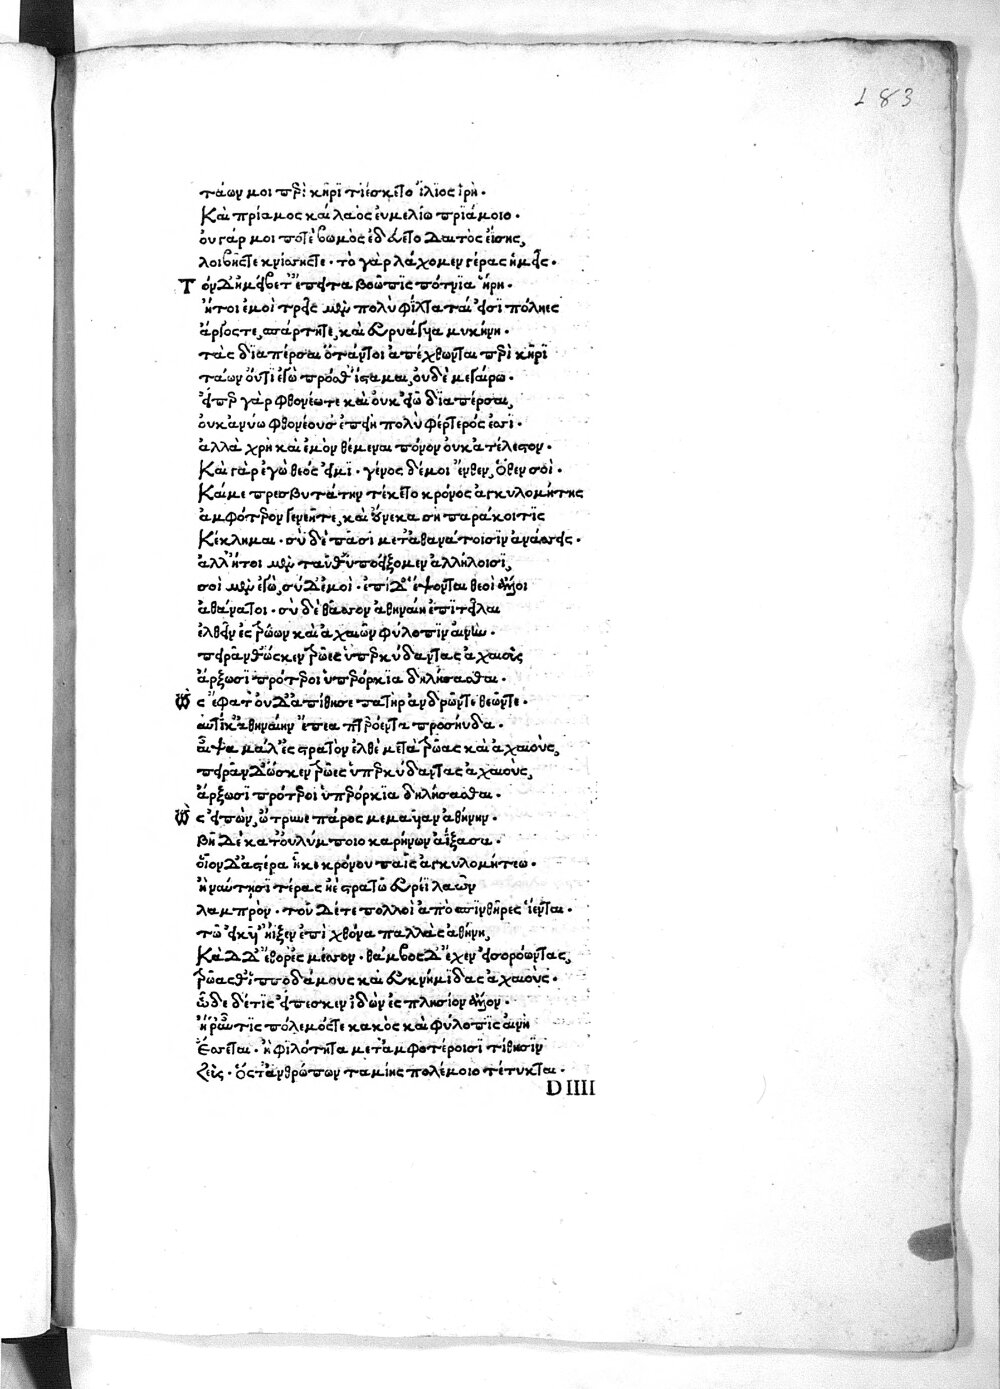 183
τάων μοι περὶ κῆρι τιέσκετο ἴλιος ἱρὴ.
Καὶ πρίαμος καὶ λαὸς ἐυμελίω πριάμοιο.
ὀυ γάρ μοι ποτὲ βωμὸς ἐδεύετο δαιτὸς ἐίσης,
λοιβῆστε κνίσηστε. τὸ γὰρ λάχομεν γέρας ἡμεῖς.
Τὸν δ' ἠμείβετ' ἔπειτα βοῶπις πότνια ἥρη.
ἤτοι ἐμοὶ τρεῖς μὲν πολὺ φίλταταί εἰσι πόληες
ἄργοστε, σπάρτητε, καὶ ἐυρυάγυια μυκήνη.
τὰς διαπέρσαι ὅτάν τοι ἀπέχθωνται περὶ κῆρι
τάων ὄυτι ἐγὼ πρόσθ' ἵσταμαι, ὀυδὲ μεγαίρω.
εἴπερ γὰρ φθονέωτε καὶ ὀυκ εἰῶ διαπέρσαι,
ὀυκ ἀνύω φθονέουσ' ἐπειὴ πολὺ φέρτερός ἐσσι.
ἀλλὰ χρὴ καὶ ἐμὸν θέμεναι πόνον ὀυκ ἀτέλεστον.
Καὶ γὰρ ἐγὼ θεός εἰμι. γένος δέ μοι ἔνθεν, ὅθεν σοὶ.
Καί με πρεσβυτάτην τέκετο κρόνος ἀγκυλομήτης
ἀμφότερον γενεῆτε, καὶ ὅυνεκα σὴ παράκοιτις
Κέκλημαι. σὺ δὲ πᾶσι μετ' ἀθανάτοισιν ἀνάσσεις.
ἀλλ' ἤτοι μὲν ταῦθ' ὑποείξομεν ἀλλήλοισι,
σοὶ μὲν ἐγὼ, σύ δ' ἐμοί. ἐπὶ δ' ἕψονται θεοὶ ἄλλοι
ἀθάνατοι. σὺ δὲ θᾶσσον ἀθηναίη ἐπιτεῖλαι
ἐλθεῖν ἐς τρώων καὶ ἀχαιῶν φύλοπιν αἰνὴν.
πειρᾶν θ' ὥς κεν τρῶες ὑπερκύδαντας ἀχαιοὺς
ἄρξωσι πρότεροι ὑπὲρ ὅρκια δηλήσασθαι.
Ὣς ἔφατ' ὀυδ' ἀπίθησε πατὴρ ἀνδρῶντε θεῶντε.
αὐτίκ' ἀθηναίην ἔπεα πτερόεντα προσηύδα.
αἶψα μάλ' ἐς στρατὸν ἐλθὲ μετὰ τρῶας καὶ ἀχαιοὺς,
πειρᾶν δ' ὥς κεν τρῶες ὑπερκύδαντας ἀχαιοὺς,
ἄρξωσι πρότεροι ὑπὲρ ὅρκια δηλήσασθαι.
Ὣς εἰπὼν, ὤτρυνε πάρος μεμαυῖαν ἀθήνην.
βῆ δὲ κατ' ὀυλύμποιο καρήνων ἀΐξασα.
οἷον δ' ἀστέρα ἧκε κρόνου παῖς ἀγκυλομήτεω.
ἢ ναύτησι τέρας ἠὲ στρατῷ ἐυρέϊ λαῶν
λαμπρὸν. τοῦ δέ τε πολλοὶ ἀπὸ σπινθῆρες ἵενται.
τῷ εἰκυῖ' ἤϊξεν ἐπὶ χθόνα παλλὰς ἀθήνη,
Κὰδ δ' ἔθορ' ἐς μέσσον. θάμβος δ' ἔχεν εἰσορόωντας,
τρῶάς θ' ἱπποδάμους καὶ ἐυκνήμιδας ἀχαιούς.
ὧδε δέ τις εἴπεσκεν ἰδὼν ἐς πλησίον ἄλλον.
ἦ ῥ' αὖτις πόλεμόστε κακὸς καὶ φύλοπις αἰνὴ
ἔσσεται. ἢ φιλότητα μετ' ἀμφοτέροισι τίθησιν
Ζεὺς. ὅς τ' ἀνθρώπων ταμίης πολέμοιο τέτυκται.
D IIII